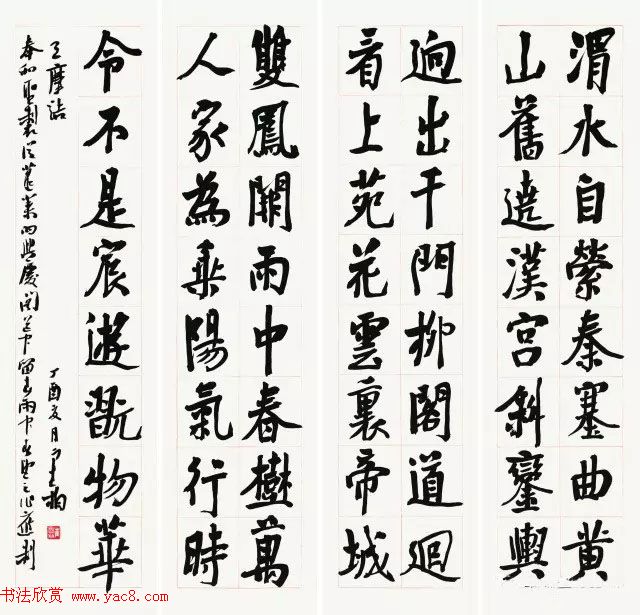 渭水自縈秦塞曲黄
山舊遶漢宮斜鑾輿
迥出千門柳閣道迴
看上苑花雲裏帝城
雙鳳闕雨中春樹萬
人家為乘陽氣行時
令不是宸遊翫物華
王摩詰
奉和聖製從蓬萊向興慶閣道中留春雨中春望之作應制
丁酉夏月
书法欣赏 www.yac8.com